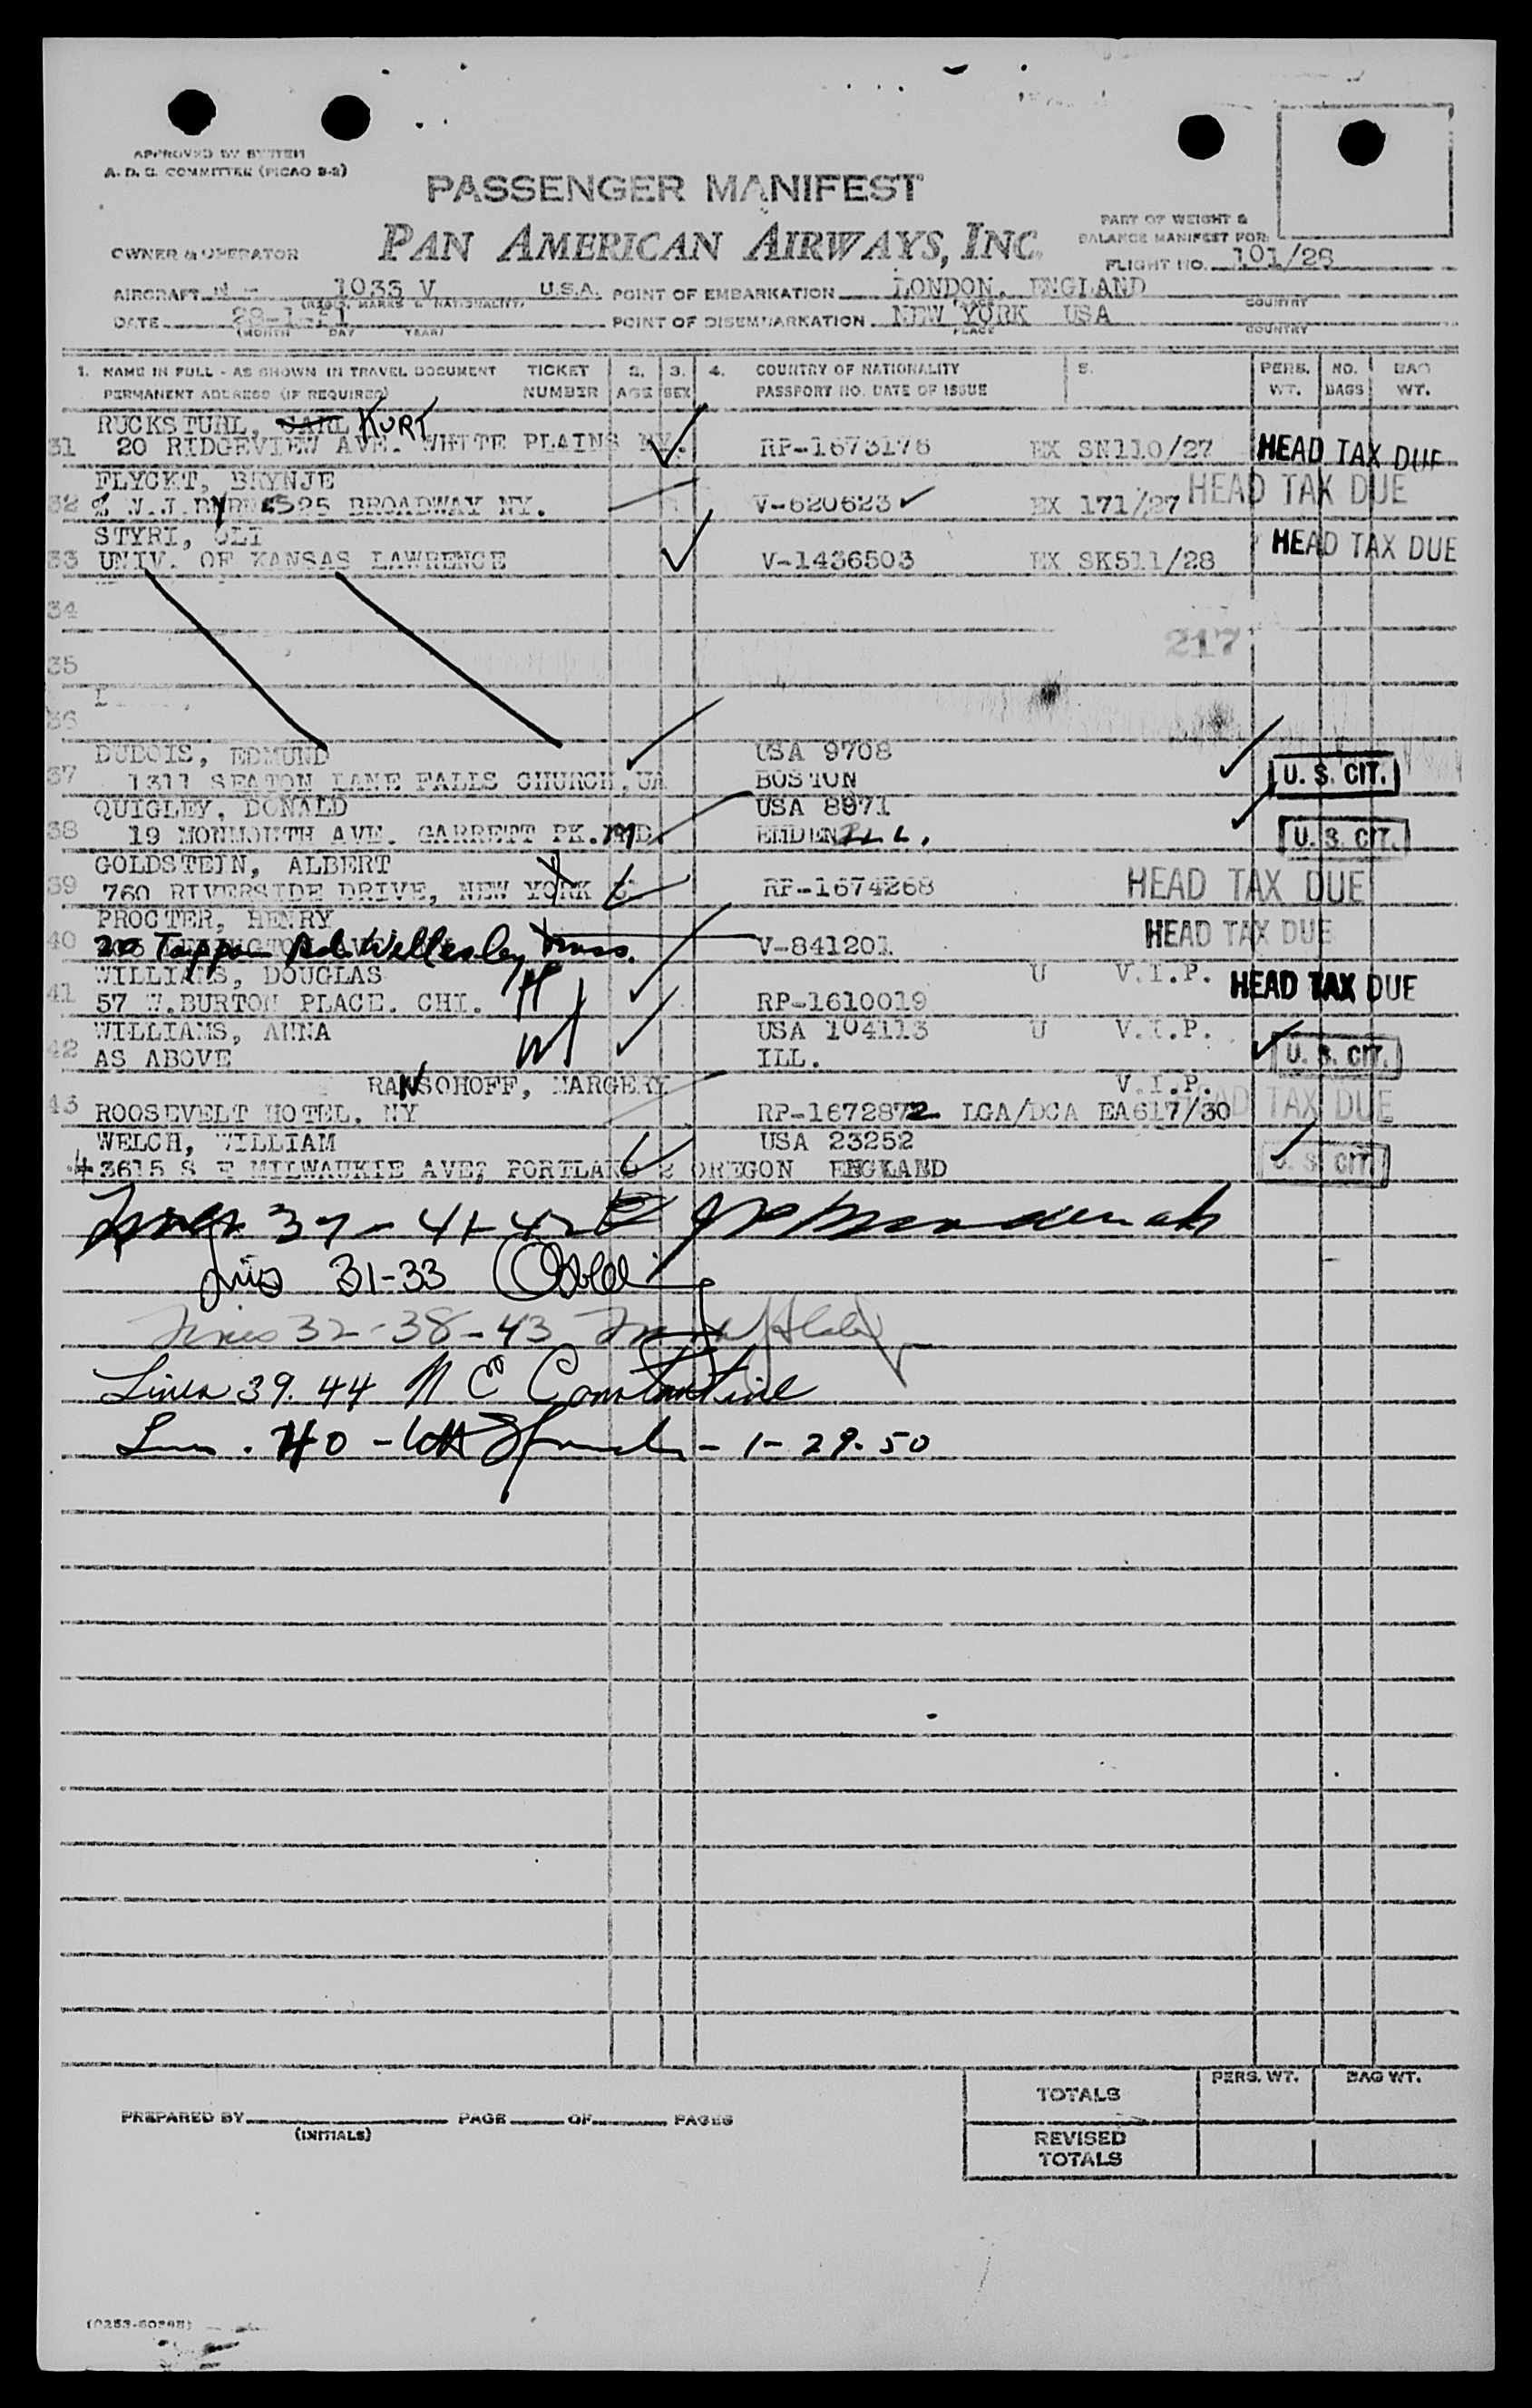 APPROVED BY SYSTEM
A. D. C. COMMITTEE (PICAO 9-2)
PASSENGER MANIFEST
PAN AMERICAN AIRWAYS, INC.
PART OF WEIGHT &
BALANCE MANIFEST FOR:
OWNER & OPERATOR
FLIGHT NO. 101/28
AIRCRAFT N - 1033 V U.S.A. POINT OF EMBARKATION LONDON, ENGLAND
(REG'N. MARKS & NATIONALITY) COUNTRY
DATE 28-1-51 POINT OF DISEMBARKATION NEW YORK USA
(MONTH DAY YEAR) PLACE COUNTRY
1. NAME IN FULL - AS SHOWN IN TRAVEL DOCUMENT TICKET 2. 3. 4. COUNTRY OF NATIONALITY 5. PERS. NO. BAG
PERMANENT ADDRESS (IF REQUIRED) NUMBER AGE SEX PASSPORT NO. DATE OF ISSUE WT. BAGS WT.
RUCKSTUHL, KURT
31 20 RIDGEVIEW AVE. WHITE PLAINS NY. RP-1673176 EX SN110/27 HEAD TAX DUE
FLYCKT, BRYNJE
32 % 525 BROADWAY NY. V-620623 EX 171/27 HEAD TAX DUE
STYRI, OLI
33 UNIV. OF KANSAS LAWRENCE V-1436503 EX SK511/28 HEAD TAX DUE
34
217
35
36
DUBOIS, EDMUND USA 9708
37 1311 SEATON LANE FALLS CHURCH, BOSTON U. S. CIT.
QUIGLEY, DONALD USA 8871
38 19 MONMOUTH AVE. GARRETT PK. MD. EMDEN ILL. U. S. CIT.
GOLDSTEIN, ALBERT
39 760 RIVERSIDE DRIVE, NEW YORK RP-1674268 HEAD TAX DUE
PROCTER, HENRY
40 20 Tappan Rd. Wellesley Mass. V-841201 HEAD TAX DUE
WILLIAMS, DOUGLAS U V.I.P.
41 57 W.BURTON PLACE. CHI. H RP-1610019 HEAD TAX DUE
WILLIAMS, ANNA USA 104113 U V.I.P.
42 AS ABOVE W ILL. U. S. CIT.
RANSOHOFF, MARGERY V.I.P.
43 ROOSEVELT HOTEL. NY RP-1672872 LGA/DCA EA617/30 HEAD TAX DUE
WELCH, WILLIAM USA 23252
3615 S E MILWAUKIE AVE, PORTLAND 2 OREGON ENGLAND U. S. CIT.
Lines 37 - 41 42
Lines 31-33
Lines 32-38-43
Lines 39. 44 N C Constantine
40 - 1-29-50
TOTALS PERS. WT. BAG WT.
PREPARED BY PAGE OF PAGES
(INITIALS)
REVISED
TOTALS